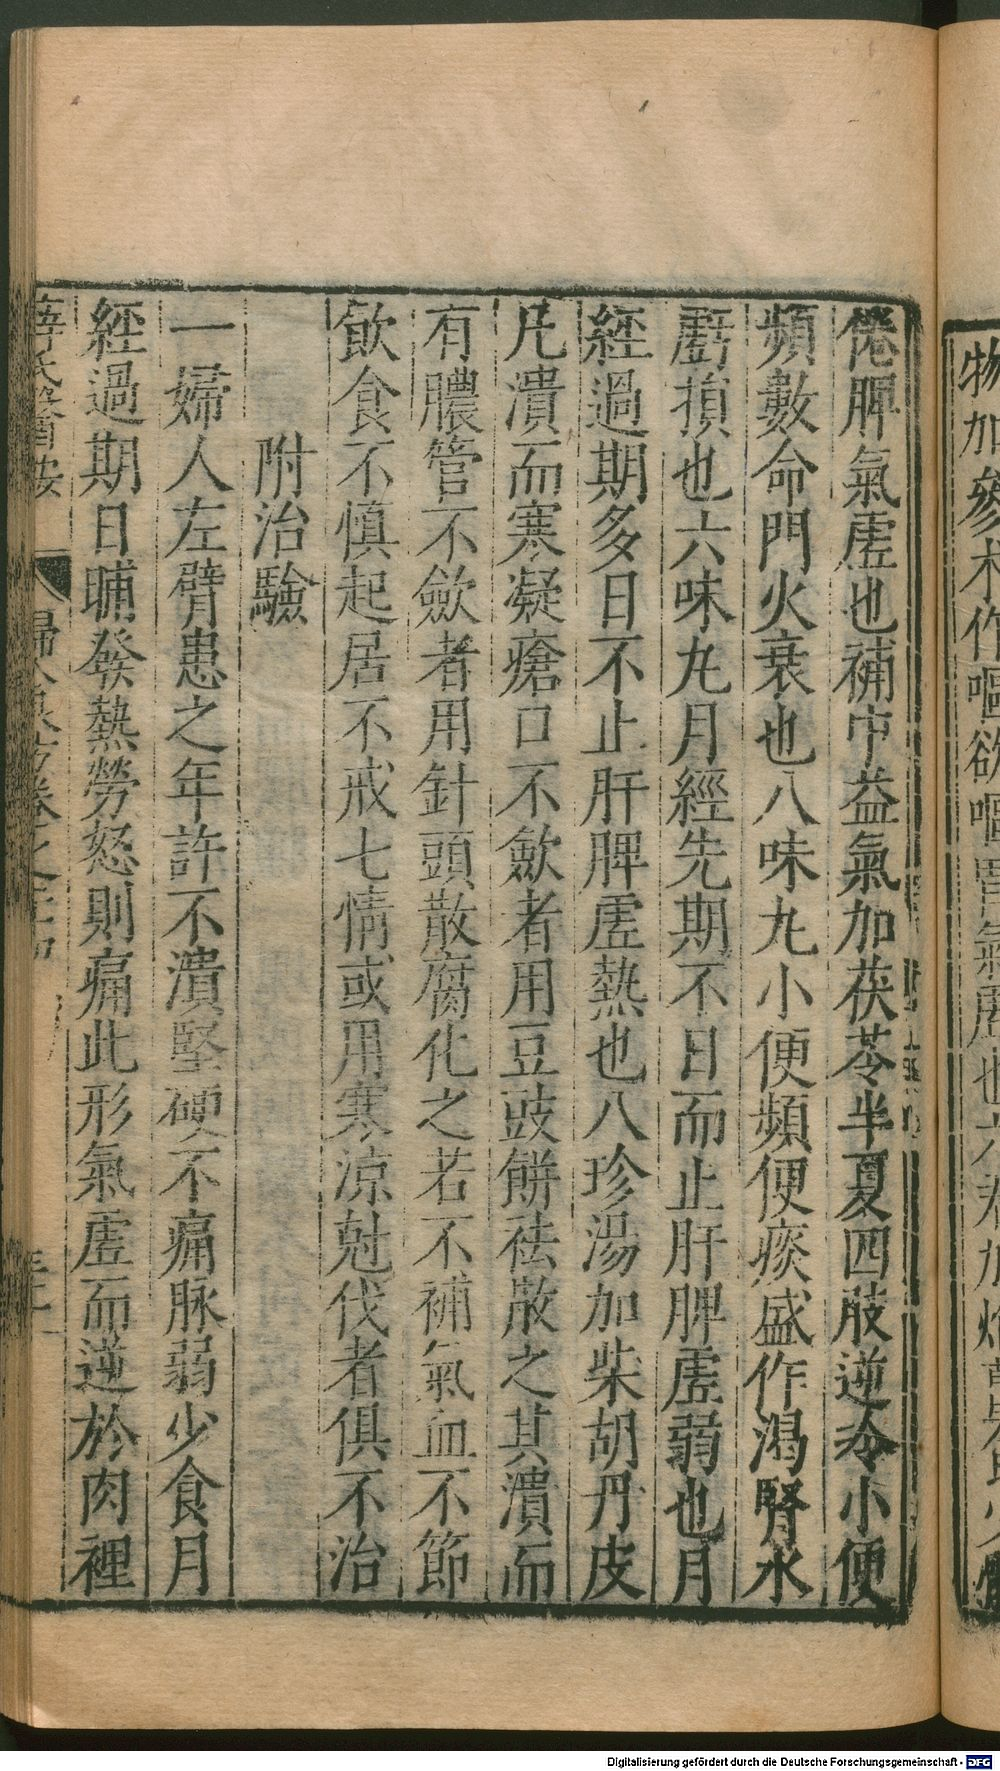 倦脾氣虛也補中益氣加茯苓半夏四肢逆冷小便
頻數命門火衰也八味丸小便頻便痰盛作渴腎水
虧損也六味丸月經先期不日而止肝脾虛弱也月
經過期多日不止肝脾虛熱也八珍湯加柴胡丹皮
凡潰而寒凝瘡口不斂者用豆豉餅祛散之其潰而
有膿管不斂者用針頭散腐化之若不補氣血不節
飲食不慎起居不戒七情或用寒涼尅伐者俱不治
附治驗
一婦人左臂患之年許不潰堅硬不痛脉弱少食月
經過期日晡發熱勞怒則痛此形氣虛而逆於肉裡
Digitalisierung gefördert durch die Deutsche Forschungsgemeinschaft - DFG